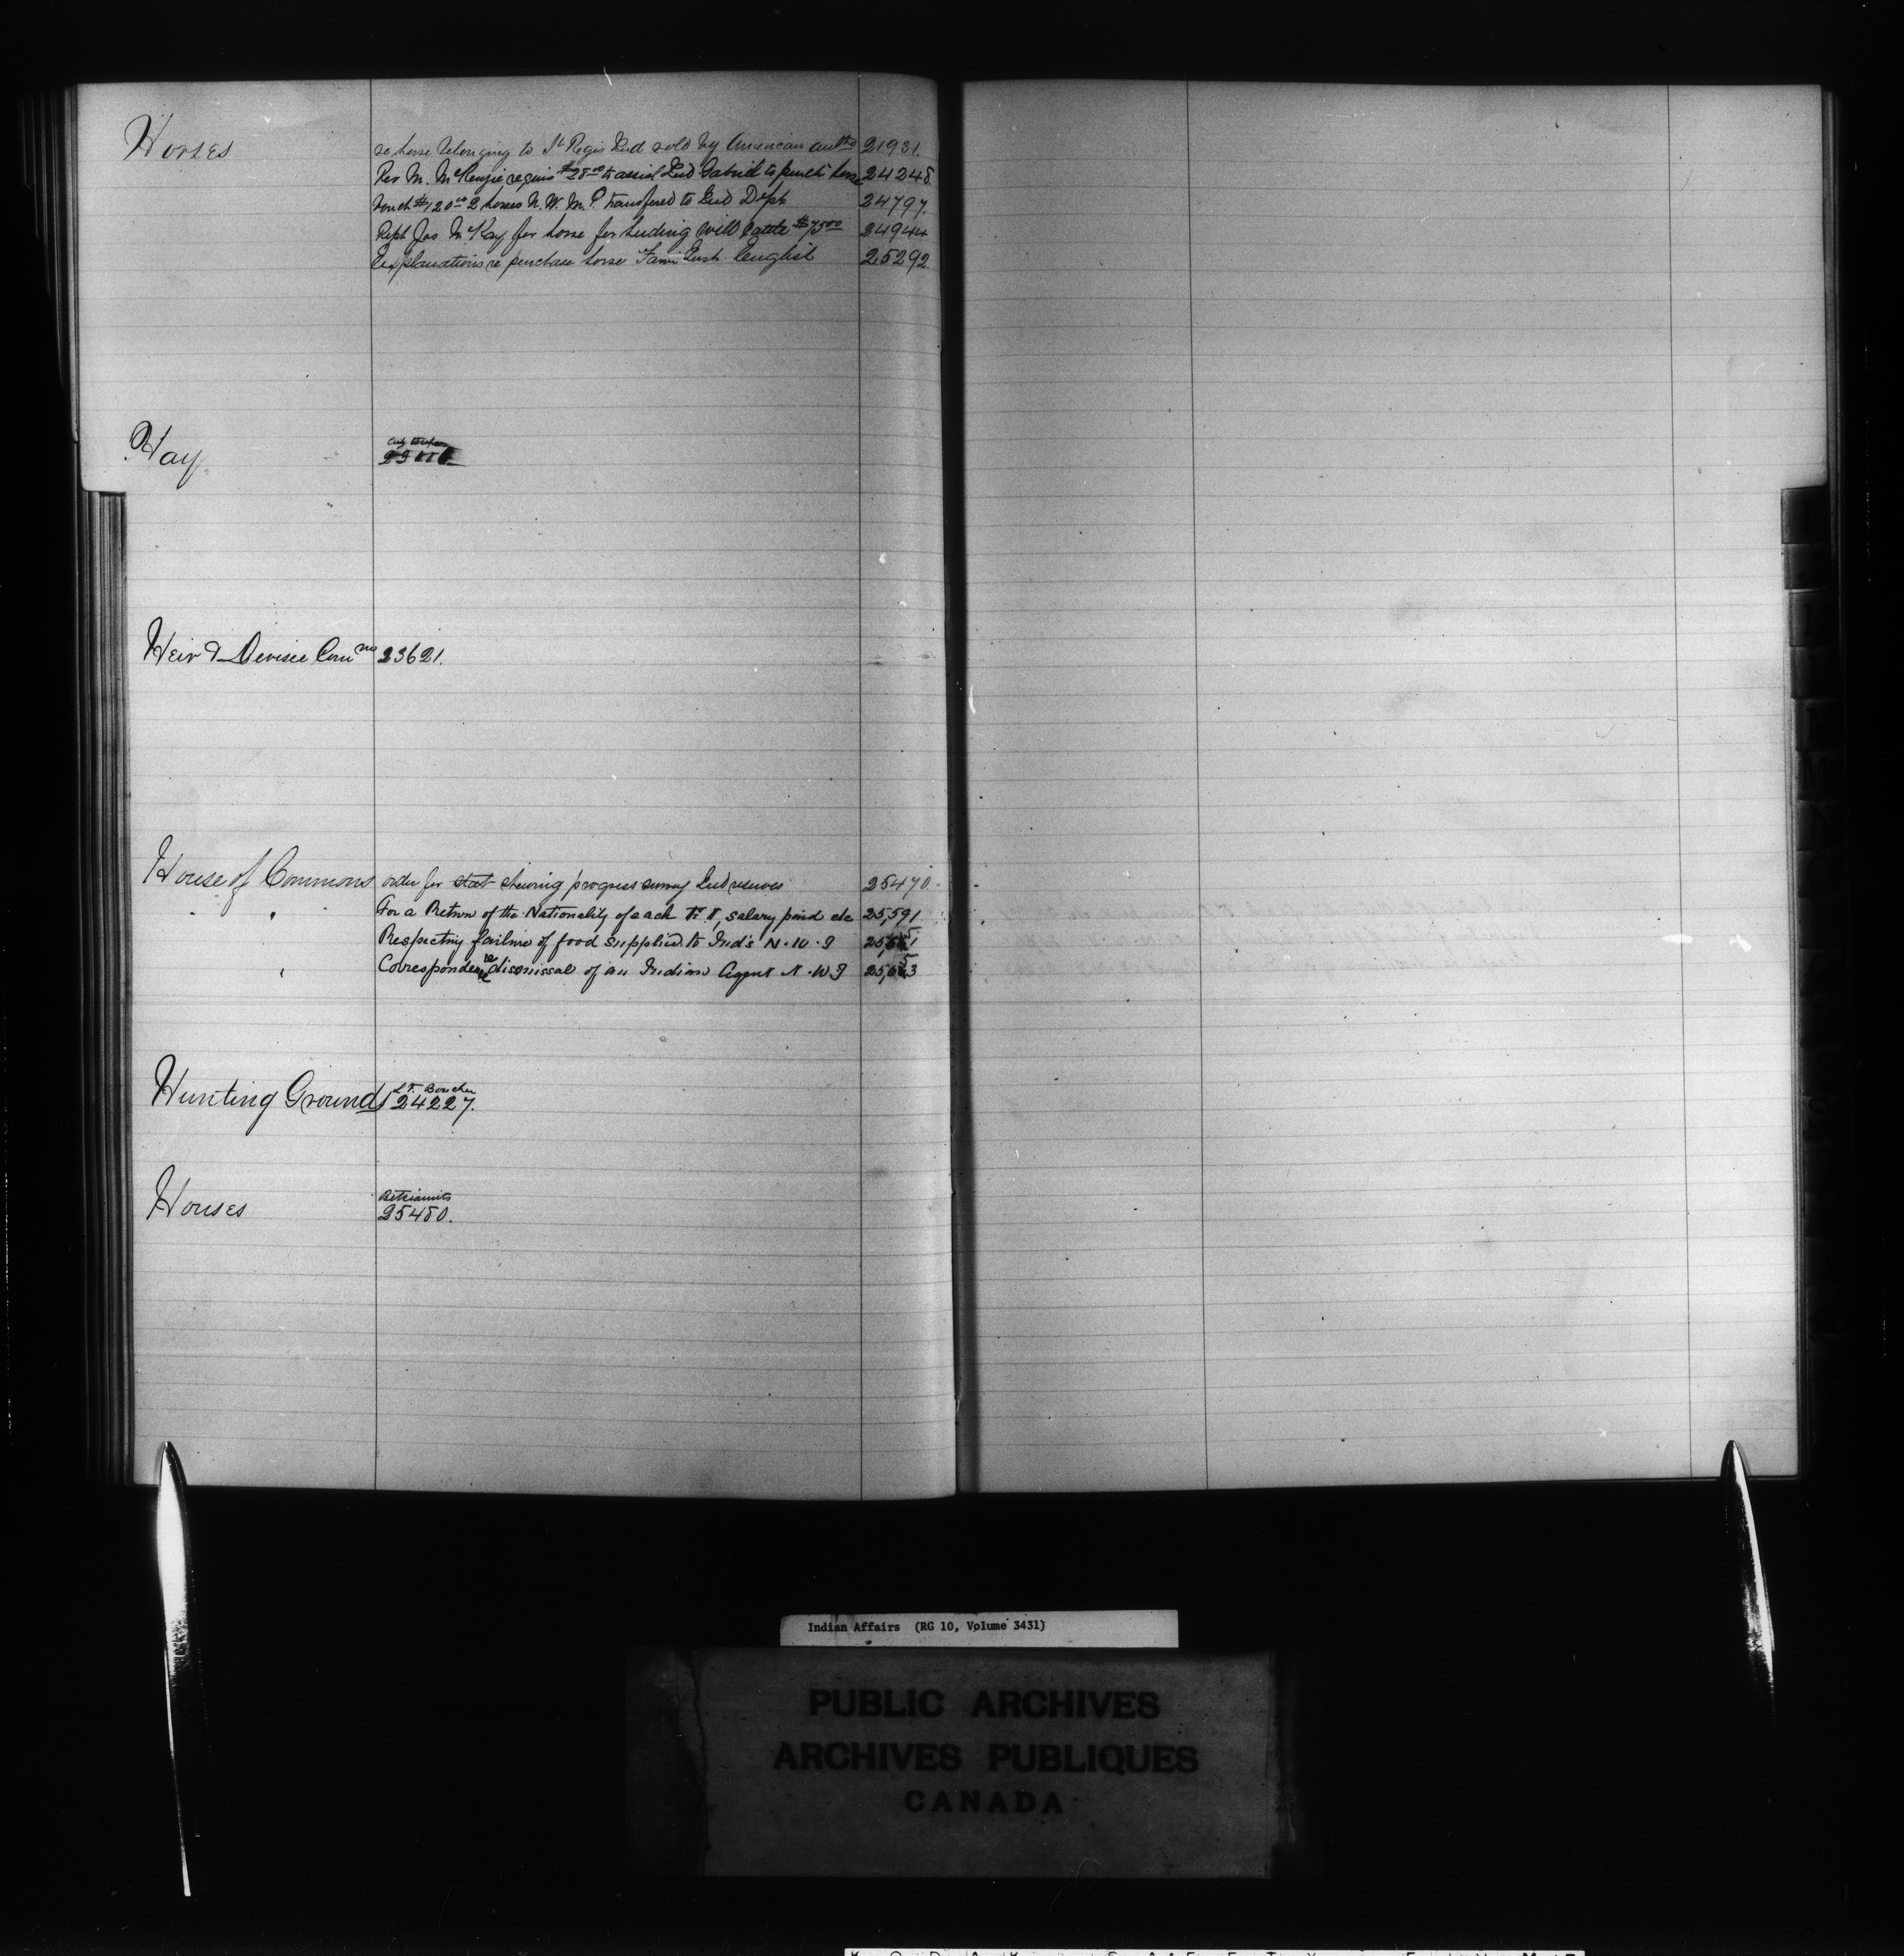 Horses re horse belonging to St Regis Ind sold by American auth 21931.
Rev M. McKenzie requis $28.00 to assist Ind Gabriel to purch horse 24248
Vouch $120.00 2 horses N. W. M. P. transfered to Ind Dept 24797.
Rept Jas McKay for horse for herding Will Cattle $75.00 24944
Explanations re purchase horse Farm Inst English 25292.
Hay
Heir & Devisee Comns 23621.
House of Commons order for stat shewing progress survey Ind reserves 25470.
" For a Return of the Nationality of each F. I, salary paid etc 25,591
Respecting failure of food supplied to Ind's N. W. T
" Correspondence re dismissal of an Indian Agent N. W T
Hunting Grounds L. F. Boucher
24227.
Houses Betsiamits
25480.
Indian Affairs (RG 10, Volume 3431)
PUBLIC ARCHIVES
ARCHIVES PUBLIQUES
CANADA